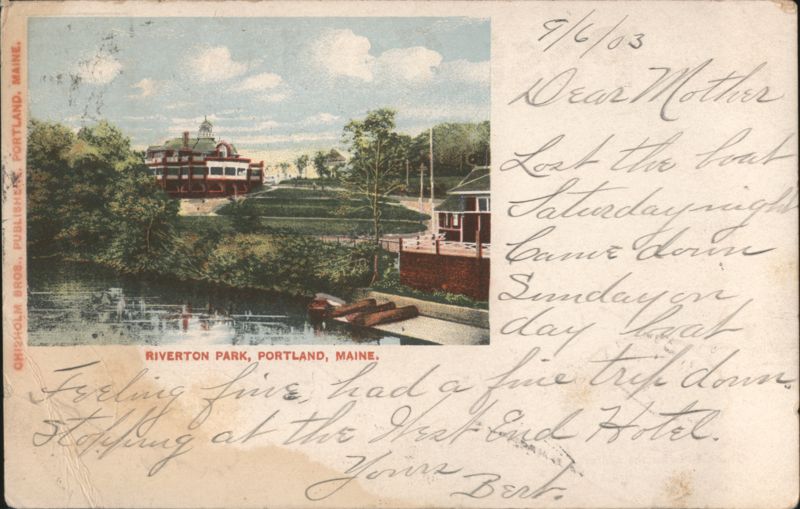 CHISHOLM BROS., PUBLISHERS, PORTLAND, MAINE.
9/6/03
Dear Mother
Lost the boat
Saturday night
Came down
Sunday on
day boat
RIVERTON PARK, PORTLAND, MAINE.
Feeling fine, had a fine trip down.
Stopping at the West End Hotel.
Yours
Bert.